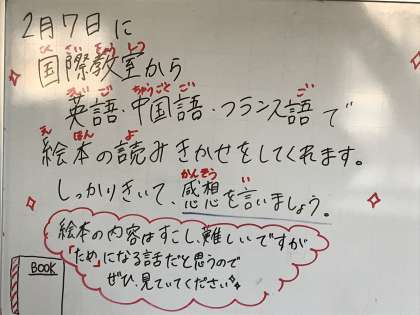 2月7日に
国際教室から
えい ご ちゅうごく ご ご
英語・中国語・フランス語で
え ほん よ
絵本の読みきかせをしてくれます。
かんそう い
しっかりきいて、感想を言いましょう。
絵本の内容はすこし、難しいですが
「ため」になる話だと思うので
ぜひ、見ていてください
BOOK